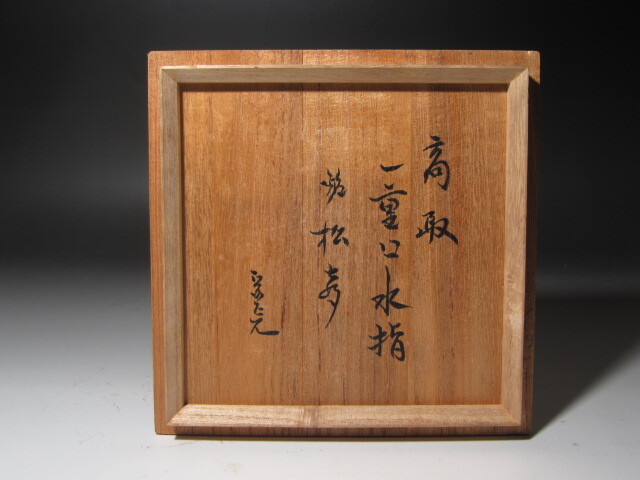 高取
一重口水指
銘 松寿